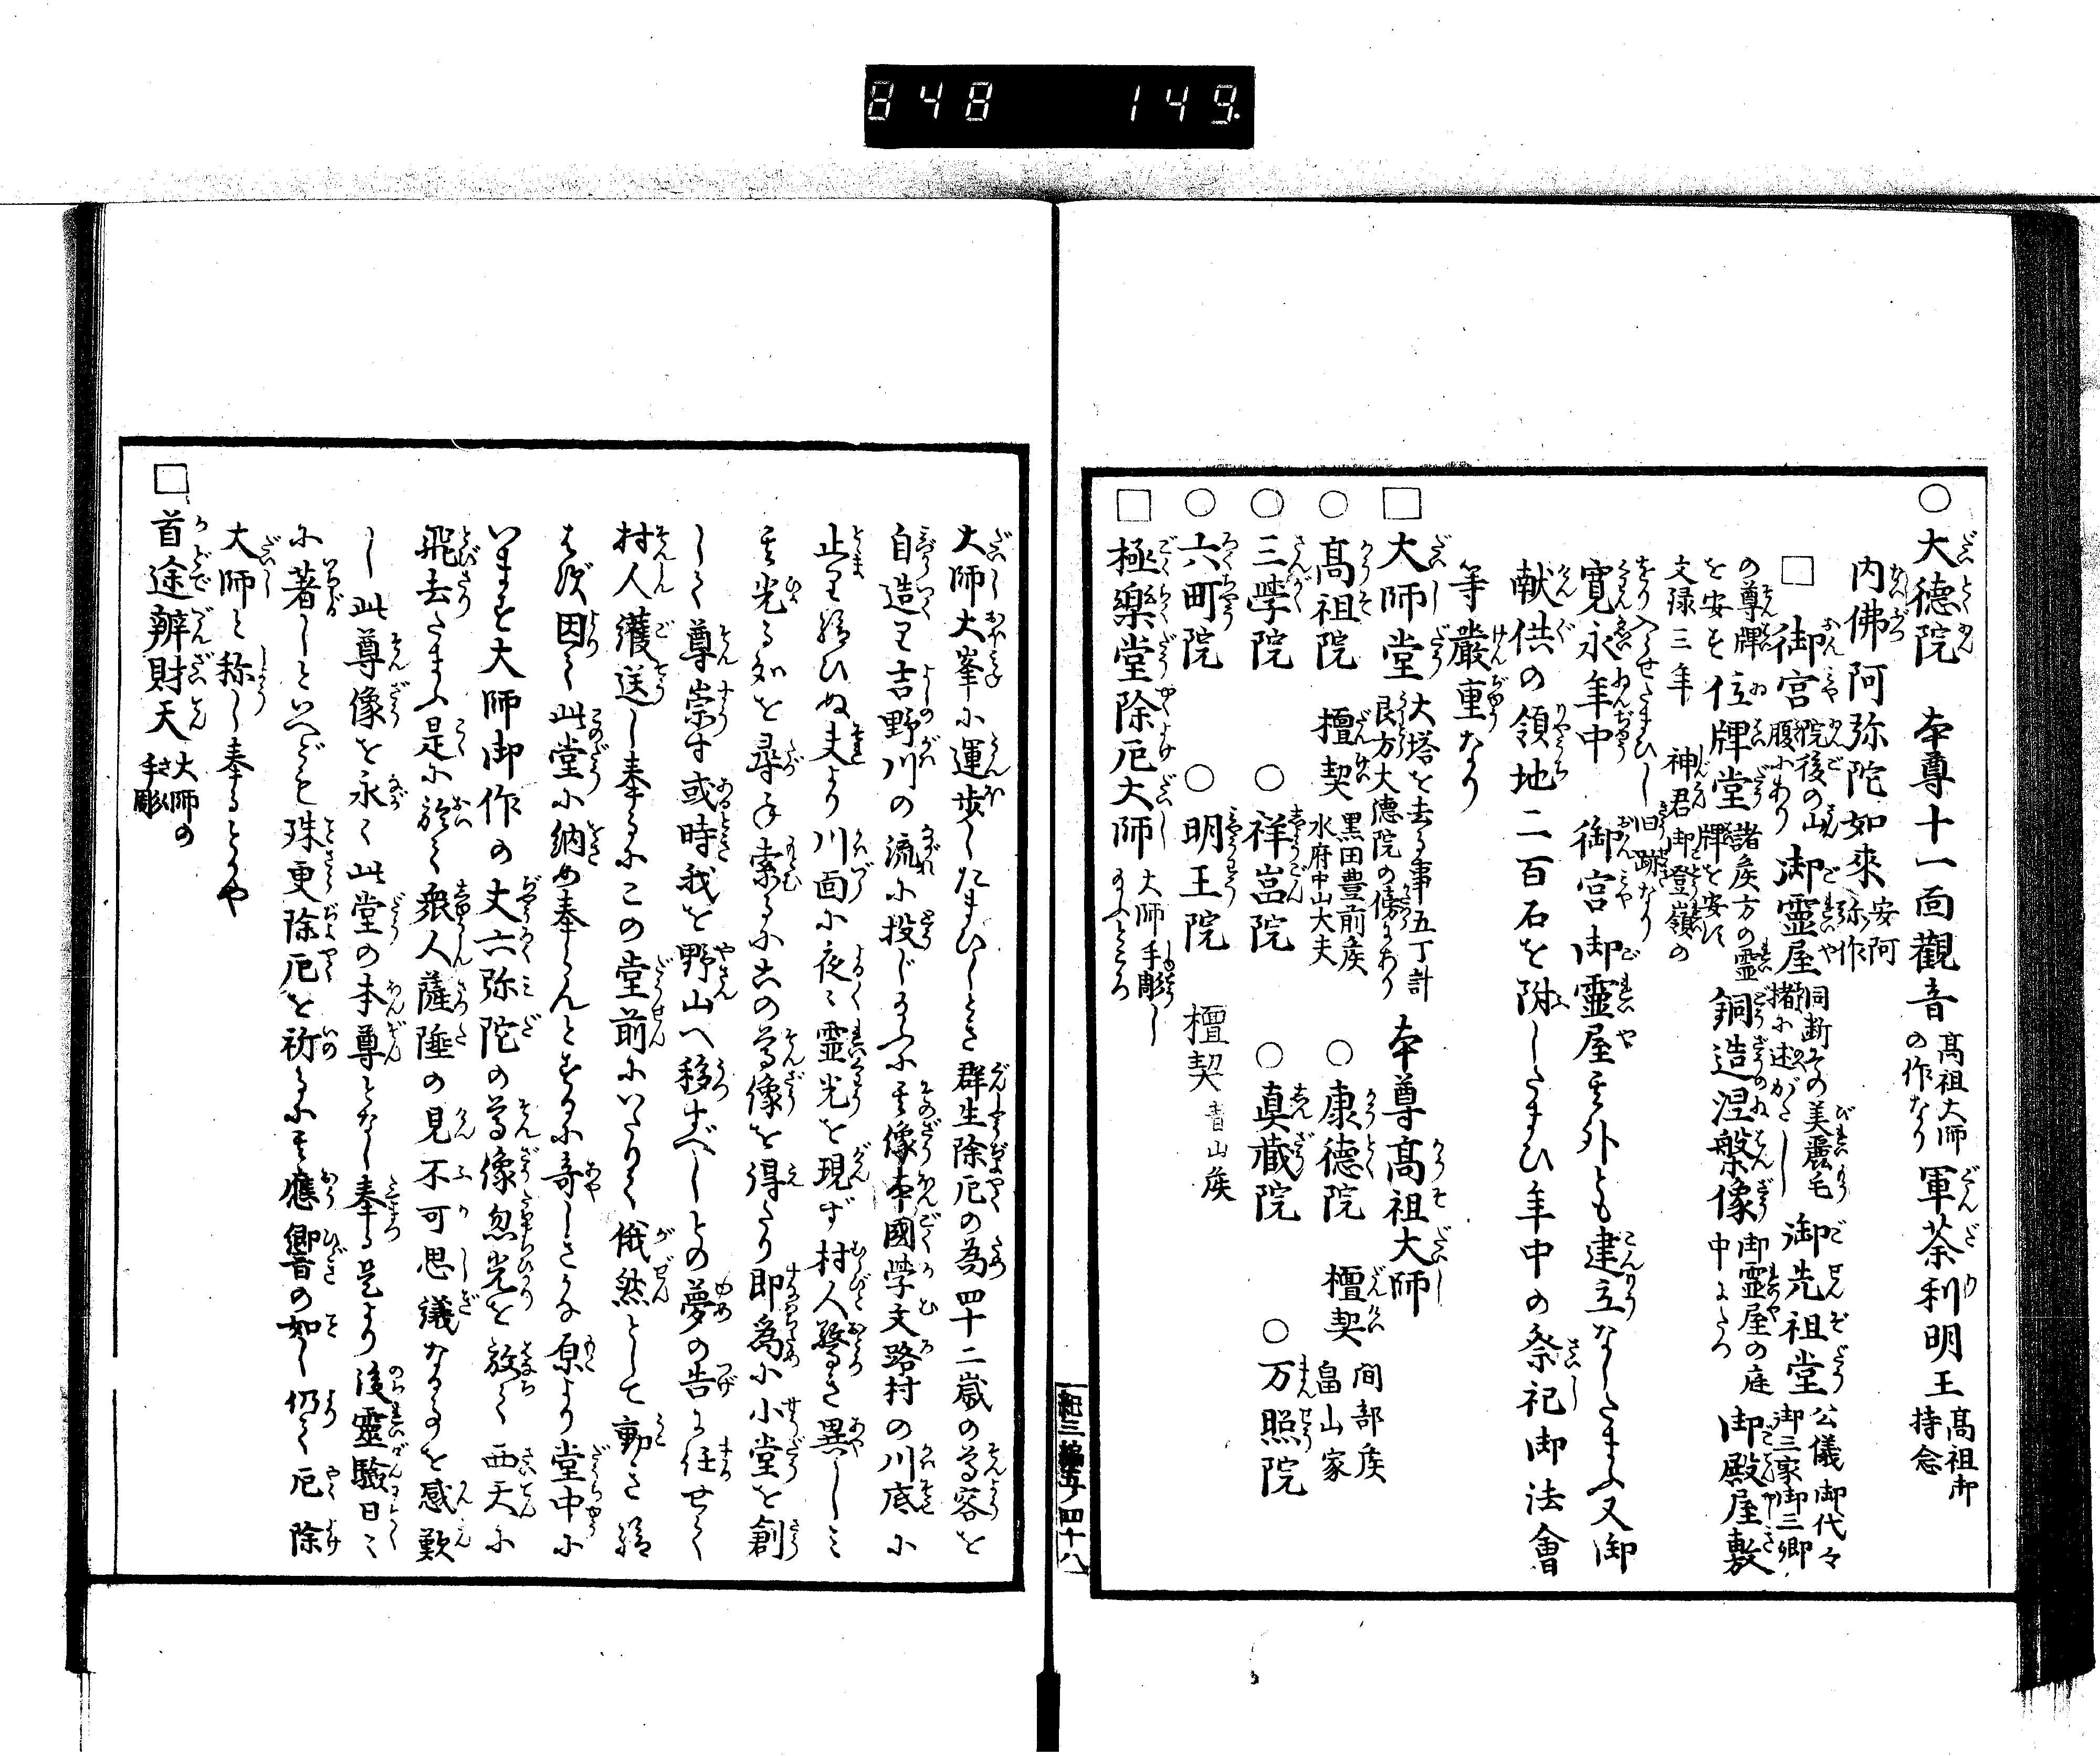 848 149.
○大徳院 本尊十一面觀音 髙祖大師の作なり 軍荼利明王 髙祖御持念
内佛阿弥陀如來 安阿弥作
□御宮 院後の山腹にあり 御霊屋 同断その美麗毛挙に述がたし 御先祖堂 公儀御代々御三家御三卿
の尊牌を安ず 位牌堂 諸矦方の霊牌を安ず 銅造涅槃像 御霊屋の庭中にたつ 御殿屋敷
文禄三年 神君御登嶺のをり入らせたまひし旧跡なり
寛永年中 御宮御霊屋其外とも建立なしたまふ又御
献供の領地二百石を附したまひ年中の祭祀御法會
等嚴重なり
□大師堂 大塔を去る事五丁計艮方大徳院の傍にあり 本尊髙祖大師
○髙祖院 檀契 黒田豊前矦 水府中山大夫 ○康徳院 檀契 間部矦 畠山家
○三學院 ○祥嵓院 ○眞蔵院 ○万照院
○六町院 ○明王院 檀契 青山矦
□極樂堂除厄大師 大師手彫し玉ふところ
紀三編五ノ四十八
大師大峯に運歩したまひしとき群生除厄の為四十二歳の尊容を
自造て吉野川の流に投じ玉ふに其像本國学文路村の川底に
止り給ひぬ夫より川面に夜〻霊光を現ず村人驚き異しミ
其光る処を尋ね索るに此の尊像を得たり即爲に小堂を創
して尊崇す或時我を野山へ移すべしとの夢の告に任せて
村人護送し奉るにこの堂前にいたりて俄然として動き給
はず因て此堂に納め奉らんとするに奇しきかな原より堂中に
います大師御作の丈六弥陀の尊像忽光を放て西天に
飛去たまふ是に於て衆人薩埵の見不可思議なるを感歎
し此尊像を永く此堂の本尊となし奉る是より後靈驗日〻
に著しといへども殊更除厄を祈るに其應響の如し仍て厄除
大師と称し奉るとかや
□首途辨財天 大師の手彫